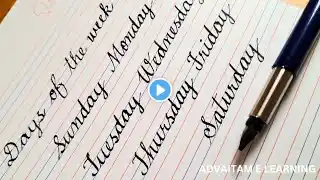 Days of the week
Sunday Monday
Tuesday Wednesday
Thursday Friday
Saturday
ADVAITAM E LEARNING